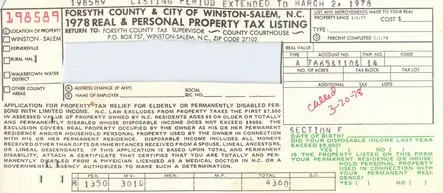 198589 LISTING PERIOD EXTENDED TO MARCH 2, 1978
198589
FORSYTH COUNTY & CITY OF WINSTON-SALEM, N.C.
1978 REAL & PERSONAL PROPERTY TAX LISTING
RETURN TO: FORSYTH COUNTY TAX SUPERVISOR COUNTY COURTHOUSE
P.O. BOX 757, WINSTON-SALEM, N.C., ZIP CODE 27102
LIST ANY IMPROVEMENTS MADE TO YOUR REAL
PROPERTY SINCE 1/1/77: COST $
TYPE
PERCENT COMPLETED 1/1/78:
LOCATION OF PROPERTY
WINSTON-SALEM
KERNERSVILLE
RURAL HALL
WALKERTOWN WATER DISTRICT
OTHER COUNTY AREAS
REAL VALUE
TYPE ACCOUNT NO. TWP. CO. NO.
A 76658110 14
NO. OF ACRES TAX BLOCK TAX LOT
called
3-20-78
ADDRESS CHANGE (IF ANY)
NAME OF EMPLOYER
SOCIAL SEC. NO.
APPLICATION FOR PROPERTY TAX RELIEF FOR ELDERLY OR PERMANENTLY DISABLED PERSONS
WITH LIMITED INCOME. N.C. LAW EXCLUDES FROM PROPERTY TAXES THE FIRST $7,500
IN ASSESSED VALUE OF PROPERTY OWNED BY N.C. RESIDENTS AGED 65 OR OLDER OR TOTALLY
AND PERMANENTLY DISABLED WHOSE DISPOSABLE INCOME DOES NOT EXCEED $9000. THIS
EXCLUSION COVERS REAL PROPERTY OCCUPIED BY THE OWNER AS HIS OR HER PERMANENT
RESIDENCE AND/OR HOUSEHOLD PERSONAL PROPERTY USED BY THE OWNER IN CONNECTION
WITH HIS OR HER RESIDENCE. DISPOSABLE INCOME INCLUDES ALL MONEYS
RECEIVED OTHER THAN GIFTS OR INHERITANCES RECEIVED FROM A SPOUSE, LINEAL ANCESTORS,
OR LINEAL DESCENDENTS. IF THIS APPLICATION IS BASED UPON TOTAL AND PERMANENT
DISABILITY, ATTACH A CERTIFICATE THAT CERTIFIES THAT YOU ARE TOTALLY AND PERMANENTLY
DISABLED FROM A PHYSICIAN LICENSED AS A MEDICAL DOCTOR IN N.C. OR A
GOVERNMENTAL AGENCY AUTHORIZED TO MAKE SUCH A DETERMINATION.
SECTION F
DATE OF BIRTH
DID YOUR DISPOSABLE INCOME LAST YEAR
EXCEED $9,000?
YES NO
IS THE PROPERTY LISTED ON THIS FORM
YOUR PERMANENT RESIDENCE OR HOUSEHOLD
PERSONAL PROPERTY
USED IN CONNECTION WITH
YOUR PERMANENT RESIDENCE?
YES NO
R. P. M.V. M.P. TOTAL S.D.
R 1350 3010 4360